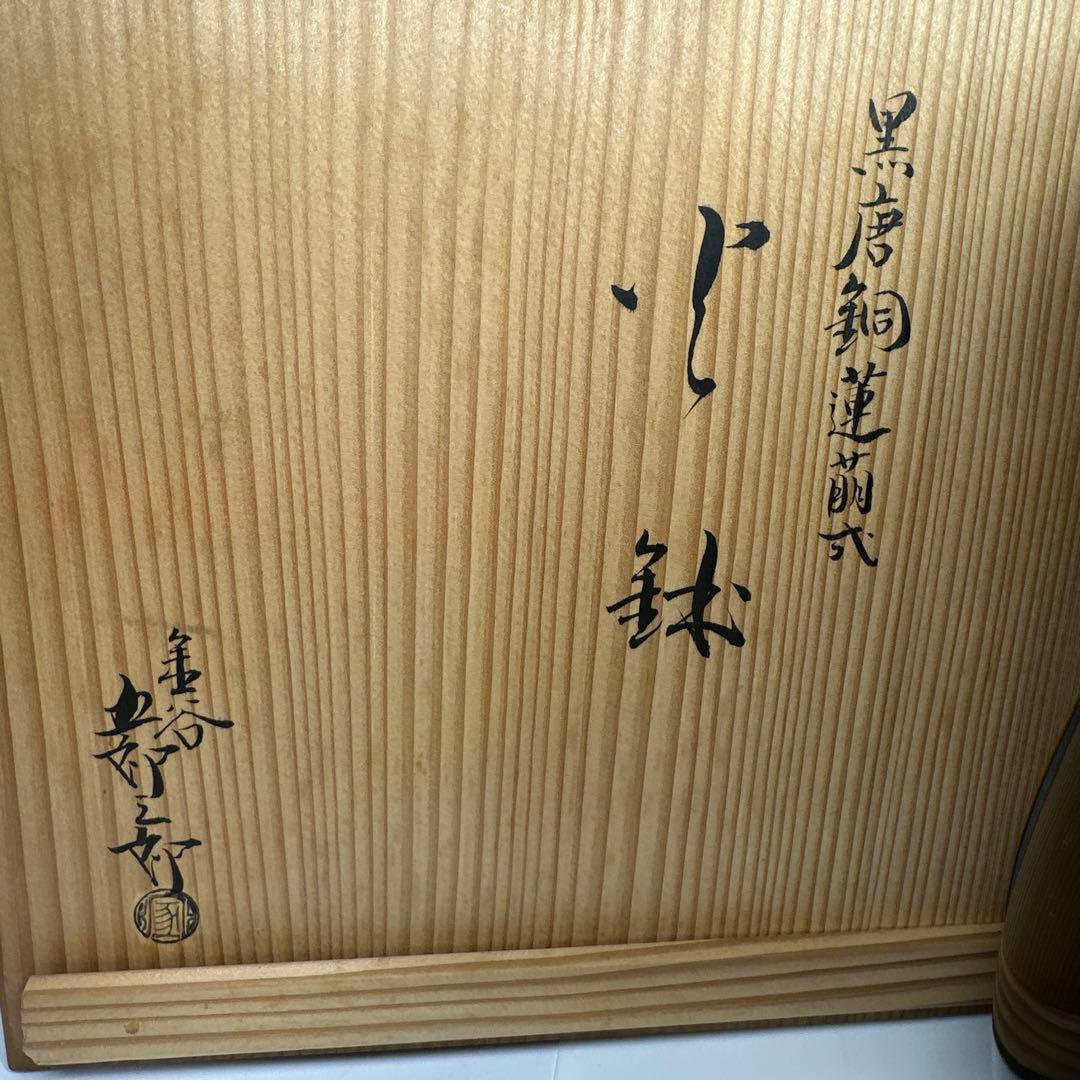 黒唐銅蓮萠式
火鉢
金谷
五郎三郎